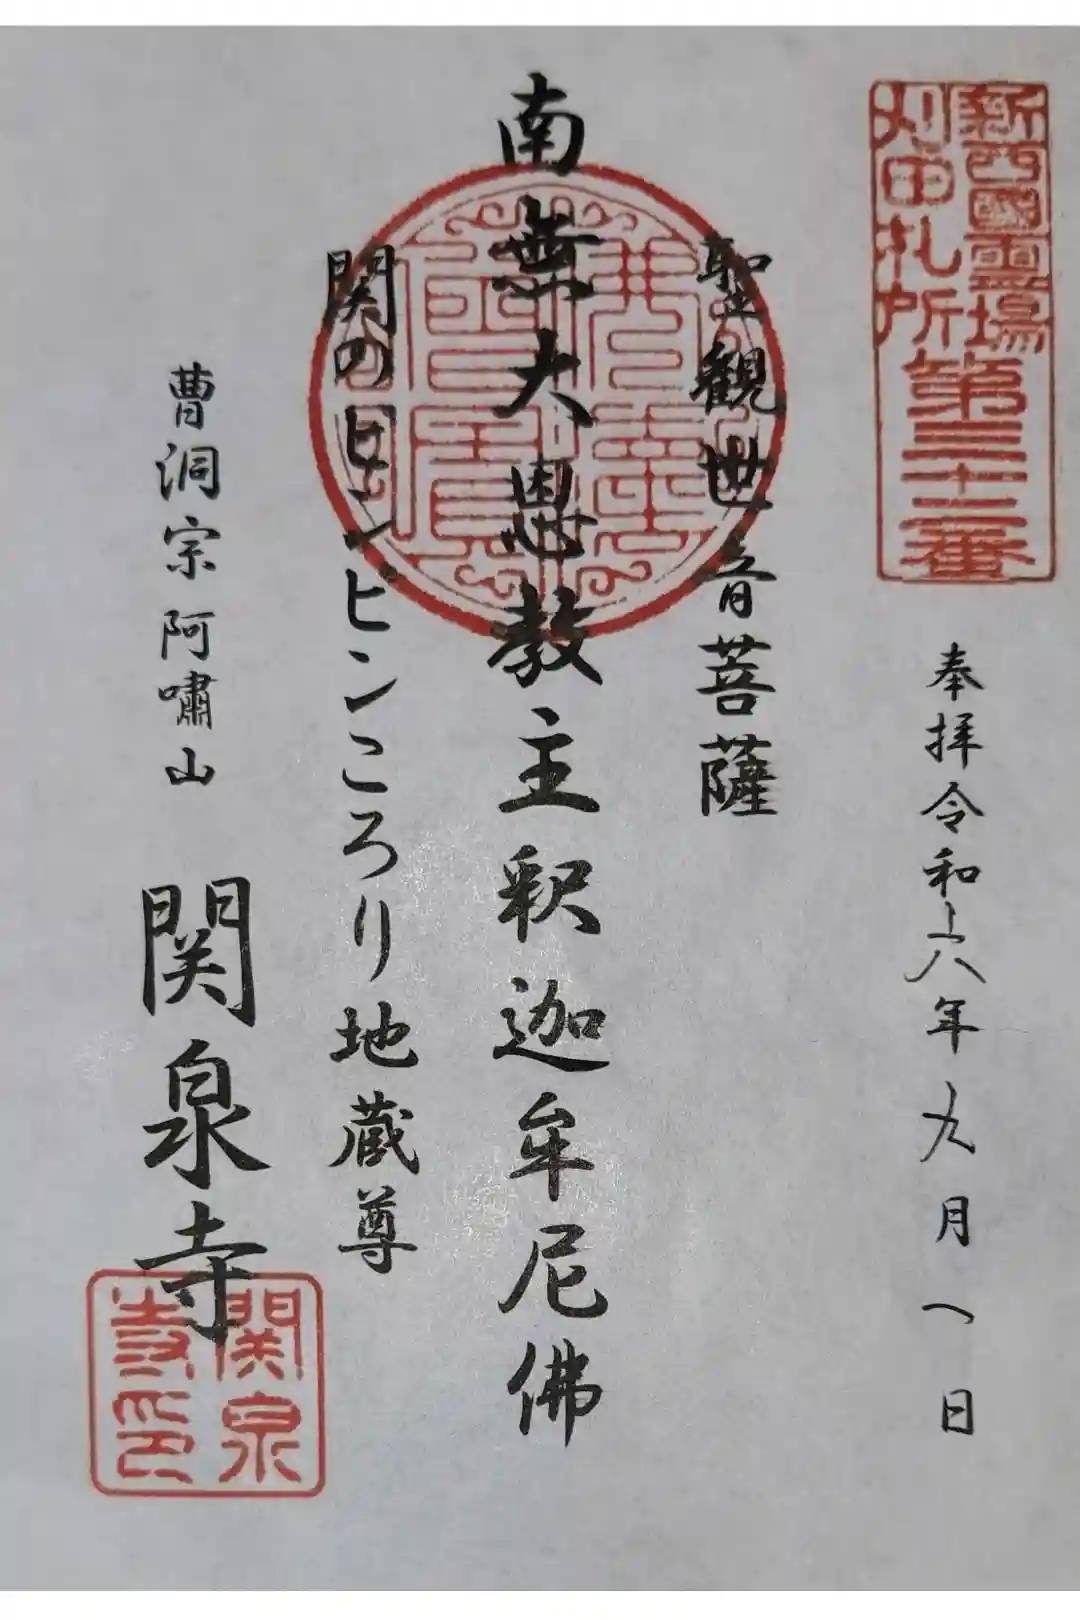 新西國霊場
刈田札所第三十二番
奉拝令和六年九月一日
聖観世音菩薩
南無大恩教主釈迦牟尼佛
関のピンピンころり地蔵尊
曹洞宗阿嘯山
関泉寺
関泉
寺印